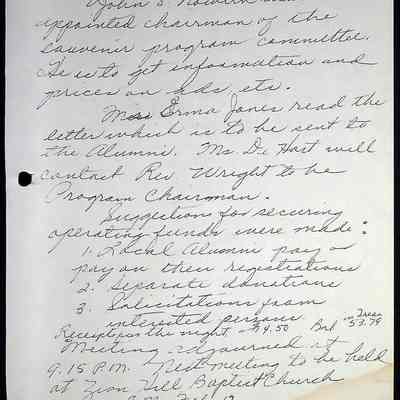 John S. 
appointed chairman of the
souvenir program committee.
He is to get information and
prices on ads etc.
Miss Erma Jones read the
letter which is to be sent to
the Alumni. Mr. De Hart will
contact Rev. Wright to be
Program Chairman.
Suggestions for securing
operating funds were made:
1. Local Alumni pay or
pay on their registrations
2. Separate donations
3. Solicitations from
interested persons.
Receipts for the night - $4.50 Bal. in Treas 53.79
Meeting adjourned at
9:15 P.M. Next meeting to be held
at Zion Hill Baptist Church
P.M. Feb. 12